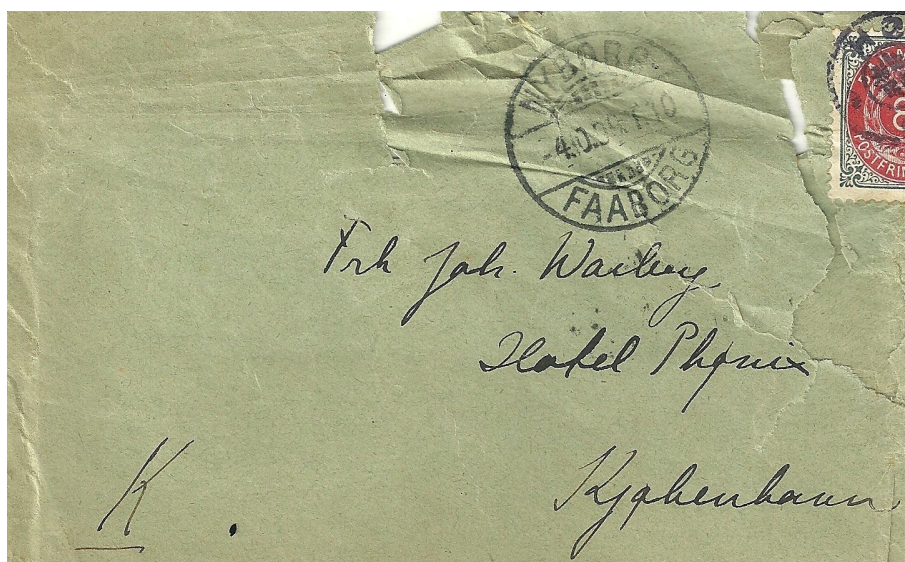 NYBORG
FAABORG
POSTFRIM
8
Frk Joh. Warberg
Hotel Phønix
Kjøbenhavn
K